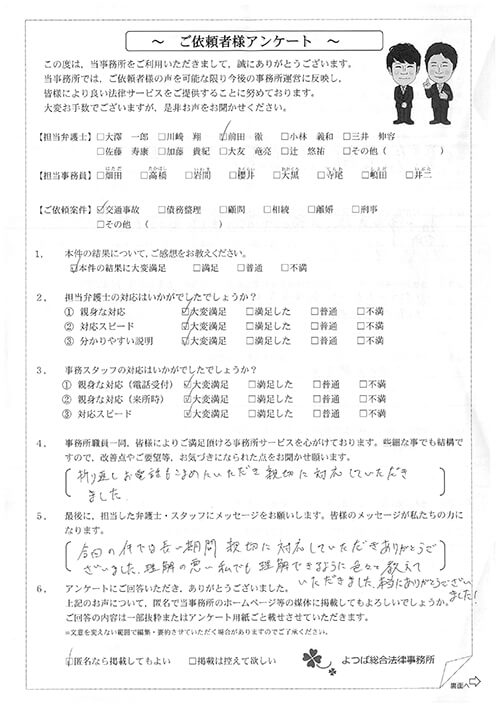 ～ ご依頼者様アンケート ～
この度は、当事務所をご利用いただきまして、誠にありがとうございます。
当事務所では、ご依頼者様の声を可能な限り今後の事務所運営に反映し、
皆様により良い法律サービスをご提供することに努めております。
大変お手数でございますが、是非お声をお聞かせください。
【担当弁護士】□大澤 一郎 □川﨑 翔 ☑前田 徹 □小林 義和 □三井 伸容
□佐藤 寿康 □加藤 貴紀 □大友 竜亮 □辻 悠祐 □その他（ ）
【担当事務員】□畑田 □高橋 □岩間 □櫻井 □大黒 □寺尾 □嶋田 □井二
【ご依頼案件】☑交通事故 □債務整理 □顧問 □相続 □離婚 □刑事
□その他 （ ）
1． 本件の結果について、ご感想をお教えください。
☑本件の結果に大変満足 □満足 □普通 □不満
2． 担当弁護士の対応はいかがでしたでしょうか？
① 親身な対応 ☑大変満足 □満足した □普通 □不満
② 対応スピード ☑大変満足 □満足した □普通 □不満
③ 分かりやすい説明 ☑大変満足 □満足した □普通 □不満
3． 事務スタッフの対応はいかがでしたでしょうか？
① 親身な対応（電話受付） ☑大変満足 □満足した □普通 □不満
② 親身な対応（来所時） ☑大変満足 □満足した □普通 □不満
③ 対応スピード ☑大変満足 □満足した □普通 □不満
4． 事務所職員一同、皆様によりご満足頂ける事務所サービスを心がけております。些細な事でも結構で
すので、改善点やご要望等、お気づきになられた点をお聞かせ願います。
折り返しお電話もこまめにいただき 親切に対応していただき
ました
5． 最後に、担当した弁護士・スタッフにメッセージをお願いします。皆様のメッセージが私たちの力に
なります。
今回の件では長い期間 親切に対応していただきありがとうご
ざいました。理解の悪い私でも理解できるように色々と教えて
いただきました。本当にありがとうござい
ました！
6． アンケートにご回答いただき、ありがとうございました。
上記のお声について、匿名で当事務所のホームページ等の媒体に掲載してもよろしいでしょうか。
ご回答の内容は一部抜粋またはアンケート用紙ごと載せさせていただきます。
※文意を変えない範囲で編集・要約させていただく場合がありますのでご了承ください。
☑匿名なら掲載してもよい □掲載は控えて欲しい よつば総合法律事務所
裏面へ